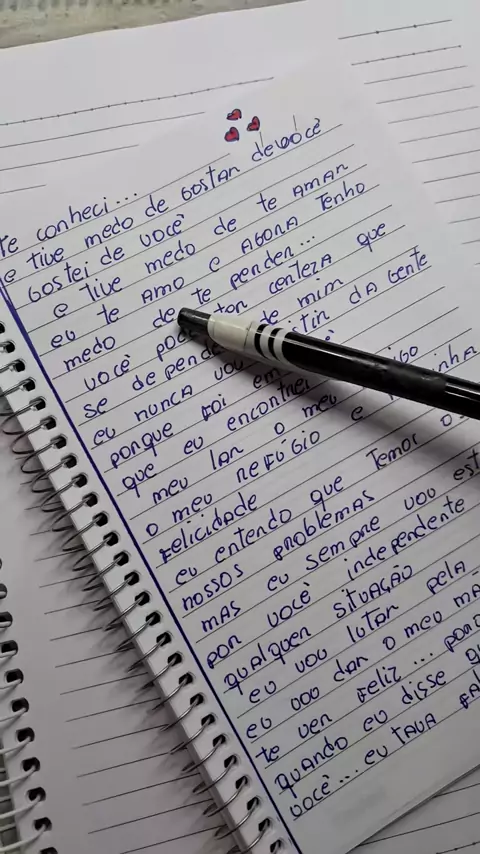 te conheci...
e tive medo de Gostar de você
Gostei de você
e tive medo de te AMAR
eu te AMO e AGORA Tenho
medo de te perder...
você certeza que
se de mim
eu nunca vou da Gente
porque foi em
que eu encontrei
meu lar o meu
o meu REFÚGIO e
Felicidade
eu entendo que Temos
nossos problemas
mas eu sempre vou
por você independente
QUALQUER SITUAÇÃO
eu vou lutar pela
eu vou dar o meu
te ver Feliz...
quando eu disse
você... eu TAVA